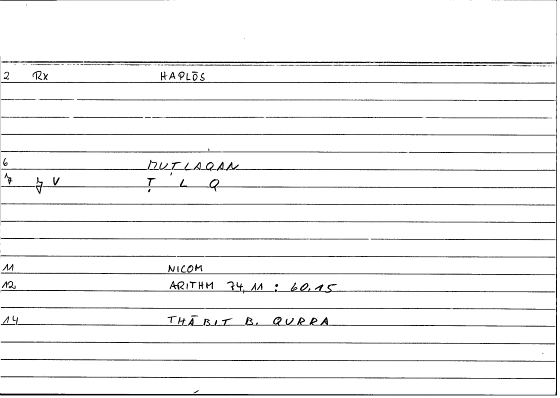 2 Rx HAPLŌS
6 MUṬLAQAN
7 V Ṭ L Q
11 NICOM
12 ARITHM 74,11 : 60.15
14 THĀBIT B. QURRA